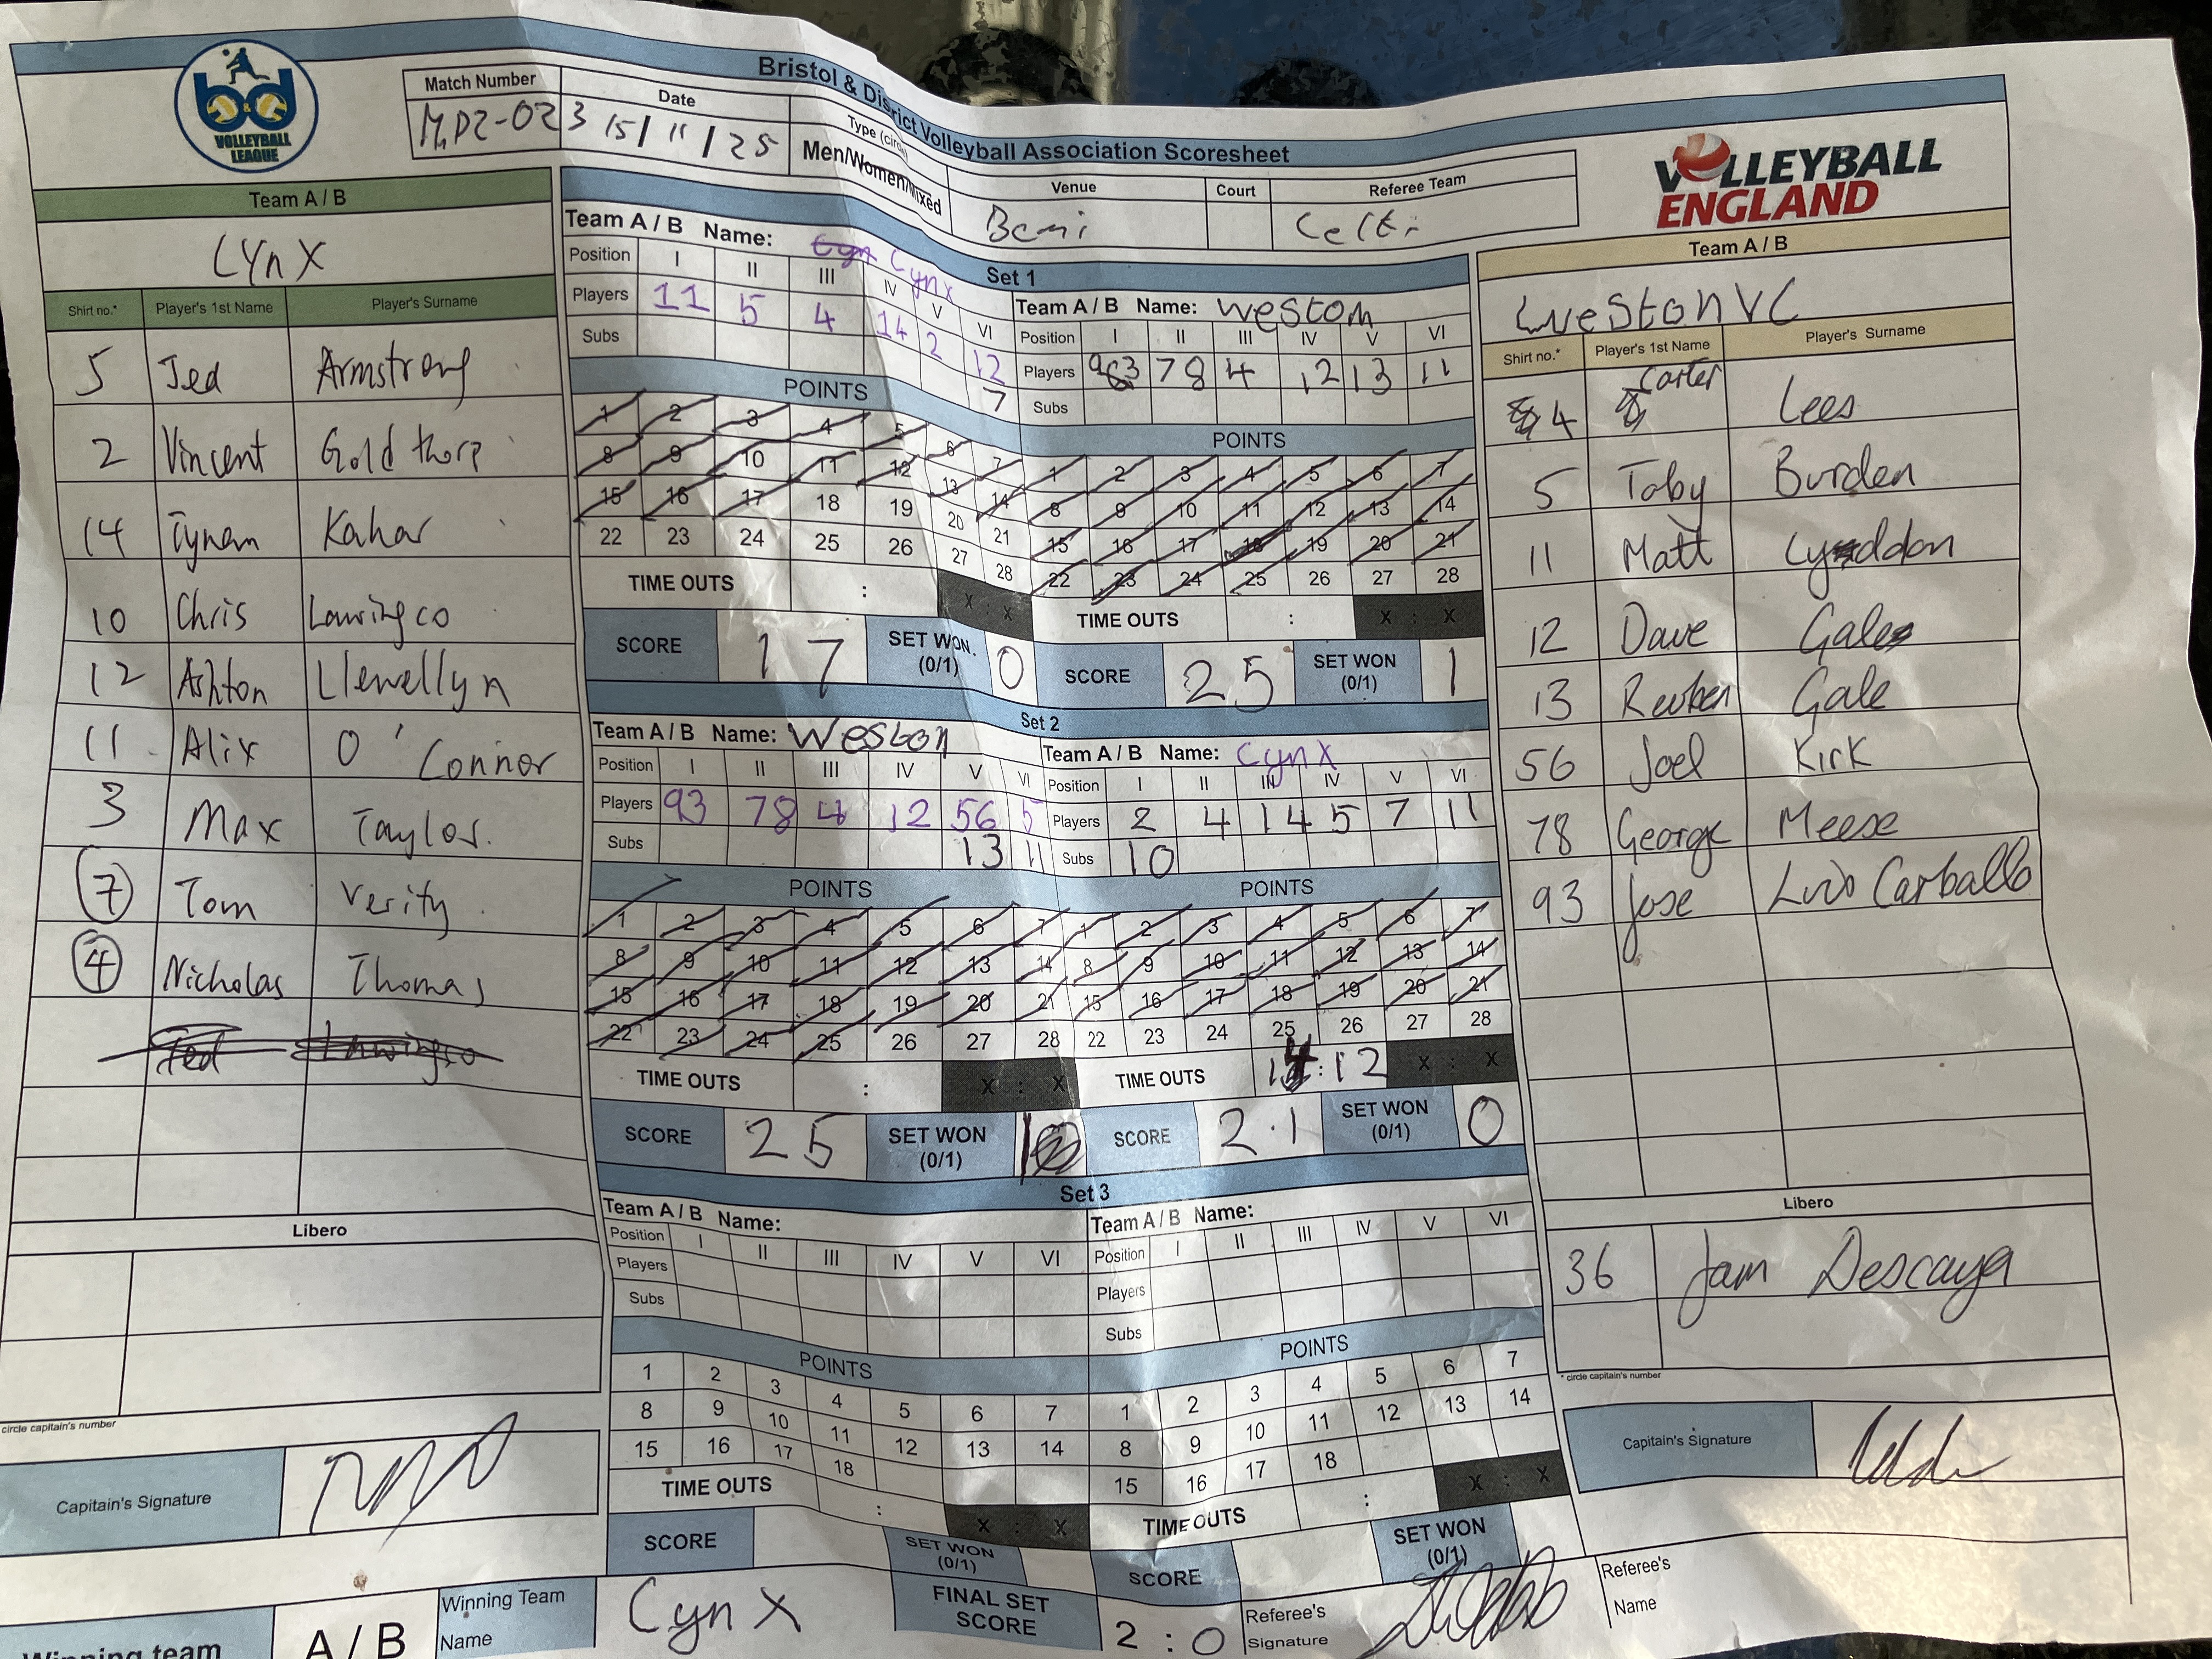 Bristol & District Volleyball Association Scoresheet
bd
VOLLEYBALL
LEAGUE
Match Number
Date
Type
M.D2-023
15/11/25
Men/Women/Mixed
Venue
Court
Referee Team
Celtic
VOLLEYBALL
ENGLAND
Team A / B
LYNX
Shirt no.*
Player's 1st Name
Player's Surname
5 Jed Armstrong
2 Vincent Goldthorp
14 Tynam Kahar
10 Chris Lawingco
12 Ashton Llewellyn
11 Alix O'Connor
3 Max Taylor.
7 Tom Verity
4 Nicholas Thomas
Libero
circle capitain's number
Capitain's Signature
Set 1
Team A / B Name: Cynx
Position I II III IV V VI
Players 11 5 4 14 2 12
Subs 7
POINTS
1 2 3 4 5 6 7
8 9 10 11 12 13 14
15 16 17 18 19 20 21
22 23 24 25 26 27 28
TIME OUTS : X : X
SCORE 17 SET WON (0/1) 0
Team A / B Name: Weston
Position I II III IV V VI
Players 93 78 4 12 13 11
Subs
POINTS
1 2 3 4 5 6 7
8 9 10 11 12 13 14
15 16 17 18 19 20 21
22 23 24 25 26 27 28
TIME OUTS : X : X
SCORE 25 SET WON (0/1) 1
Set 2
Team A / B Name: Weston
Position I II III IV V VI
Players 93 78 4 12 56 5
Subs 13 11
POINTS
1 2 3 4 5 6 7
8 9 10 11 12 13 14
15 16 17 18 19 20 21
22 23 24 25 26 27 28
TIME OUTS : X : X
SCORE 25 SET WON (0/1) 1
Team A / B Name: Cynx
Position I II III IV V VI
Players 2 4 14 5 7 11
Subs 10
POINTS
1 2 3 4 5 6 7
8 9 10 11 12 13 14
15 16 17 18 19 20 21
22 23 24 25 26 27 28
TIME OUTS : 12 X : X
SCORE 2.1 SET WON (0/1) 0
Set 3
Team A / B Name:
Position I II III IV V VI
Players
Subs
POINTS
1 2 3 4 5 6 7
8 9 10 11 12 13 14
15 16 17 18
TIME OUTS : X : X
SCORE SET WON (0/1)
Team A / B Name:
Position I II III IV V VI
Players
Subs
POINTS
1 2 3 4 5 6 7
8 9 10 11 12 13 14
15 16 17 18
TIME OUTS : X : X
SCORE SET WON (0/1)
Team A / B
Weston VC
Shirt no.*
Player's 1st Name
Player's Surname
4 Carter Lees
5 Toby Burden
11 Matt
12 Dave Gale
13 Reuben Gale
56 Joel Kirk
78 George Meese
93 Jose Luis Carballo
Libero
36 Jam Descaya
* circle capitain's number
Capitain's Signature
Winning team
A / B
Winning Team
Name
Cynx
FINAL SET
SCORE
2 : 0
Referee's
Signature
Referee's
Name